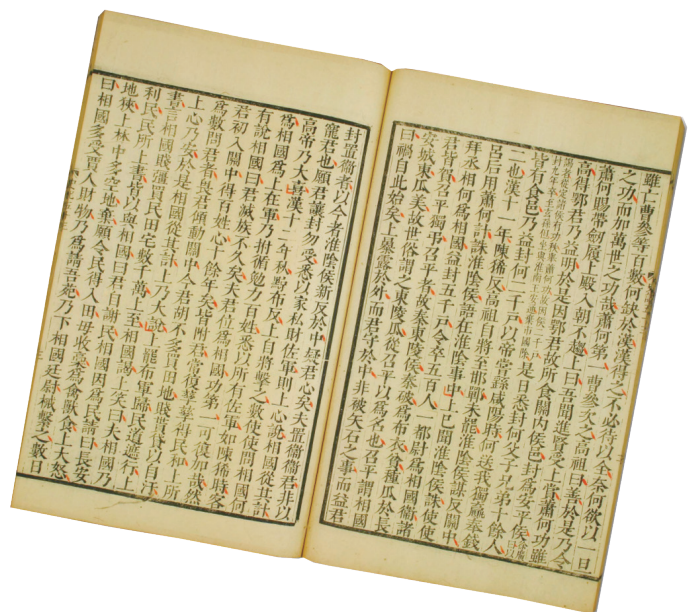 雖亡曹參等百數何缺於漢漢得之不必待以全奈何欲以一旦
之功而加萬世之功哉蕭何第一曹參次之高祖曰善於是乃令
蕭何賜帶劒履上殿入朝不趨上曰吾聞進賢受上賞蕭何功雖
高得鄂君乃益明於是因鄂君故所食關內侯邑封爲安平侯
是日悉封何父子兄弟十餘人
皆有食邑乃益封何二千戶以帝嘗繇咸陽時何送我獨贏奉錢
二也漢十一年陳豨反高祖自將至邯鄲未罷淮陰侯謀反關中
呂后用蕭何計誅淮陰侯語在淮陰事中上已聞淮陰侯誅使使
拜丞相何爲相國益封五千戶令卒五百人一都尉爲相國衞諸
君皆賀召平獨弔召平者故秦東陵侯秦破爲布衣貧種瓜於長
安城東瓜美故世俗謂之東陵瓜從召平以爲名也召平謂相國
曰禍自此始矣上暴露於外而君守於中非被矢石之事而益君
封置衞者以今者淮陰侯新反於中疑君心矣夫置衞衞君非以
寵君也願君讓封勿受悉以家私財佐軍則上心說相國從其計
高帝乃大喜漢十二年秋黥布反上自將擊之數使使問相國何
爲相國爲上在軍乃拊循勉力百姓悉以所有佐軍如陳豨時客
有說相國曰君滅族不久矣夫君位爲相國功第一可復加哉然
君初入關中得百姓心十餘年矣皆附君常復孳孳得民和上所
爲數問君者畏君傾動關中今君胡不多買田地賤貰貸以自汙
上心乃安於是相國從其計上乃大說上罷布軍歸民道遮行上
書言相國賤彊買民田宅數千萬上至相國謁上笑曰夫相國乃
利民民所上書皆以與相國曰君自謝民相國因爲民請曰長安
地狹上林中多空地棄願令民得入田毋收稾爲禽獸食上大怒
曰相國多受賈人財物乃爲請吾苑乃下相國廷尉械繫之數日